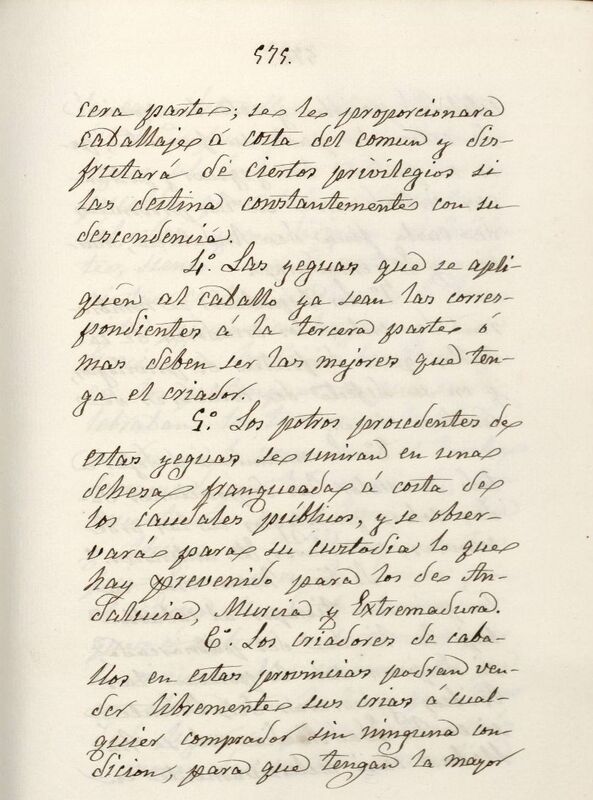 575.
cera parte; se le proporcionara
caballaje á costa del comun y dis-
frutará de ciertos privilegios si
las destina constantemente con su
descendencia.
4.º Las yeguas que se apli-
quén al caballo ya sean las corres-
pondientes á la tercera parte ó
mas deben ser las mejores que ten-
ga el criador.
5.º Los potros procedentes de
estas yeguas se uniran en una
dehesa franqueada á costa de
los caudales públicos, y se obser-
vará para su custodia lo que
hay prevenido para los de An-
dalucia, Murcia y Extremadura.
6.º Los criadores de caba-
llos en estas provincias podran ven-
der libremente sus crias á cual-
quier comprador sin ninguna con
dicion, para que tengan la mayor